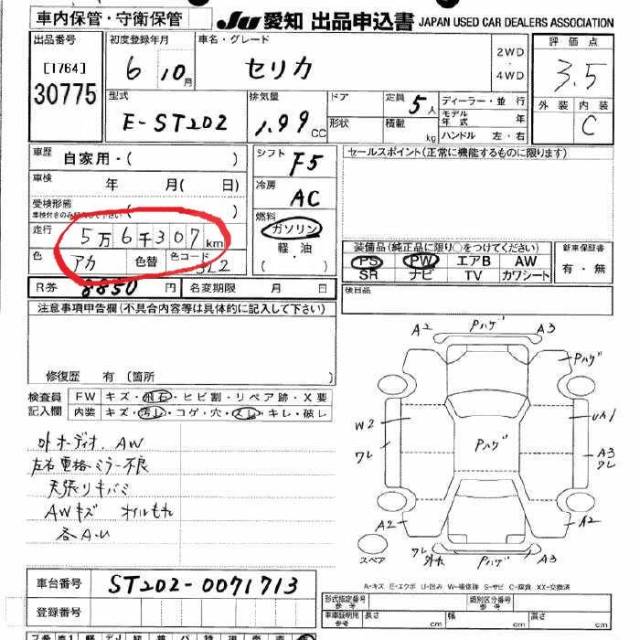 車内保管・守衛保管 JU 愛知 出品申込書 JAPAN USED CAR DEALERS ASSOCIATION
出品番号 初度登録年月 車名・グレード 2WD ・ 4WD 評価点
[1764] 6 10月 セリカ 3.5
30775
型式 排気量 ドア 定員 5人 ディーラー・並行
E-ST202 1.99 CC 形状 積載 kg モデル年式 年
ハンドル 左・右
外装 内装
C
車歴 自家用・( ) シフト F5 セールスポイント(正常に機能するものに限ります)
車検 年 月( 日) 冷房 AC
受検形態 ( )
車検付きのみ記入して下さい
走行 5万6千307km 燃料 ガソリン 軽・油 ・( )
色 アカ 色替 色コード 3L2
装備品(純正品に限り○をつけてください) 新車保証書
PS PW エアB AW 有・無
SR ナビ TV カワシート
R券 8850 円 名変期限 月 日 後日品
注意事項申告欄(不具合内容等は具体的に記入して下さい)
修復歴 有(箇所
検査員 FW キズ・飛石・ヒビ割・リペア跡・X要
記入欄 内装 キズ・汚れ・コゲ・穴・スレ・キレ・破レ
外オーディオ. AW
左右電格ミラー不良
天張リキバミ
AWキズ オイルもれ
各A.U
A2 Pハゲ A3
Pハゲ
W2 UA1
ワレ Pハゲ A3
ワレ
A2 A2
スペア ワレ Pハゲ A3
A-キズ E-エクボ U-凹み W-補修跡 S-サビ C-腐食 XX-交換済
車台番号 ST202-0071713
登録番号
形式指定番号 参考 類別区分番号 参考
車台証明用 参考 長さ cm 幅 cm 高さ cm